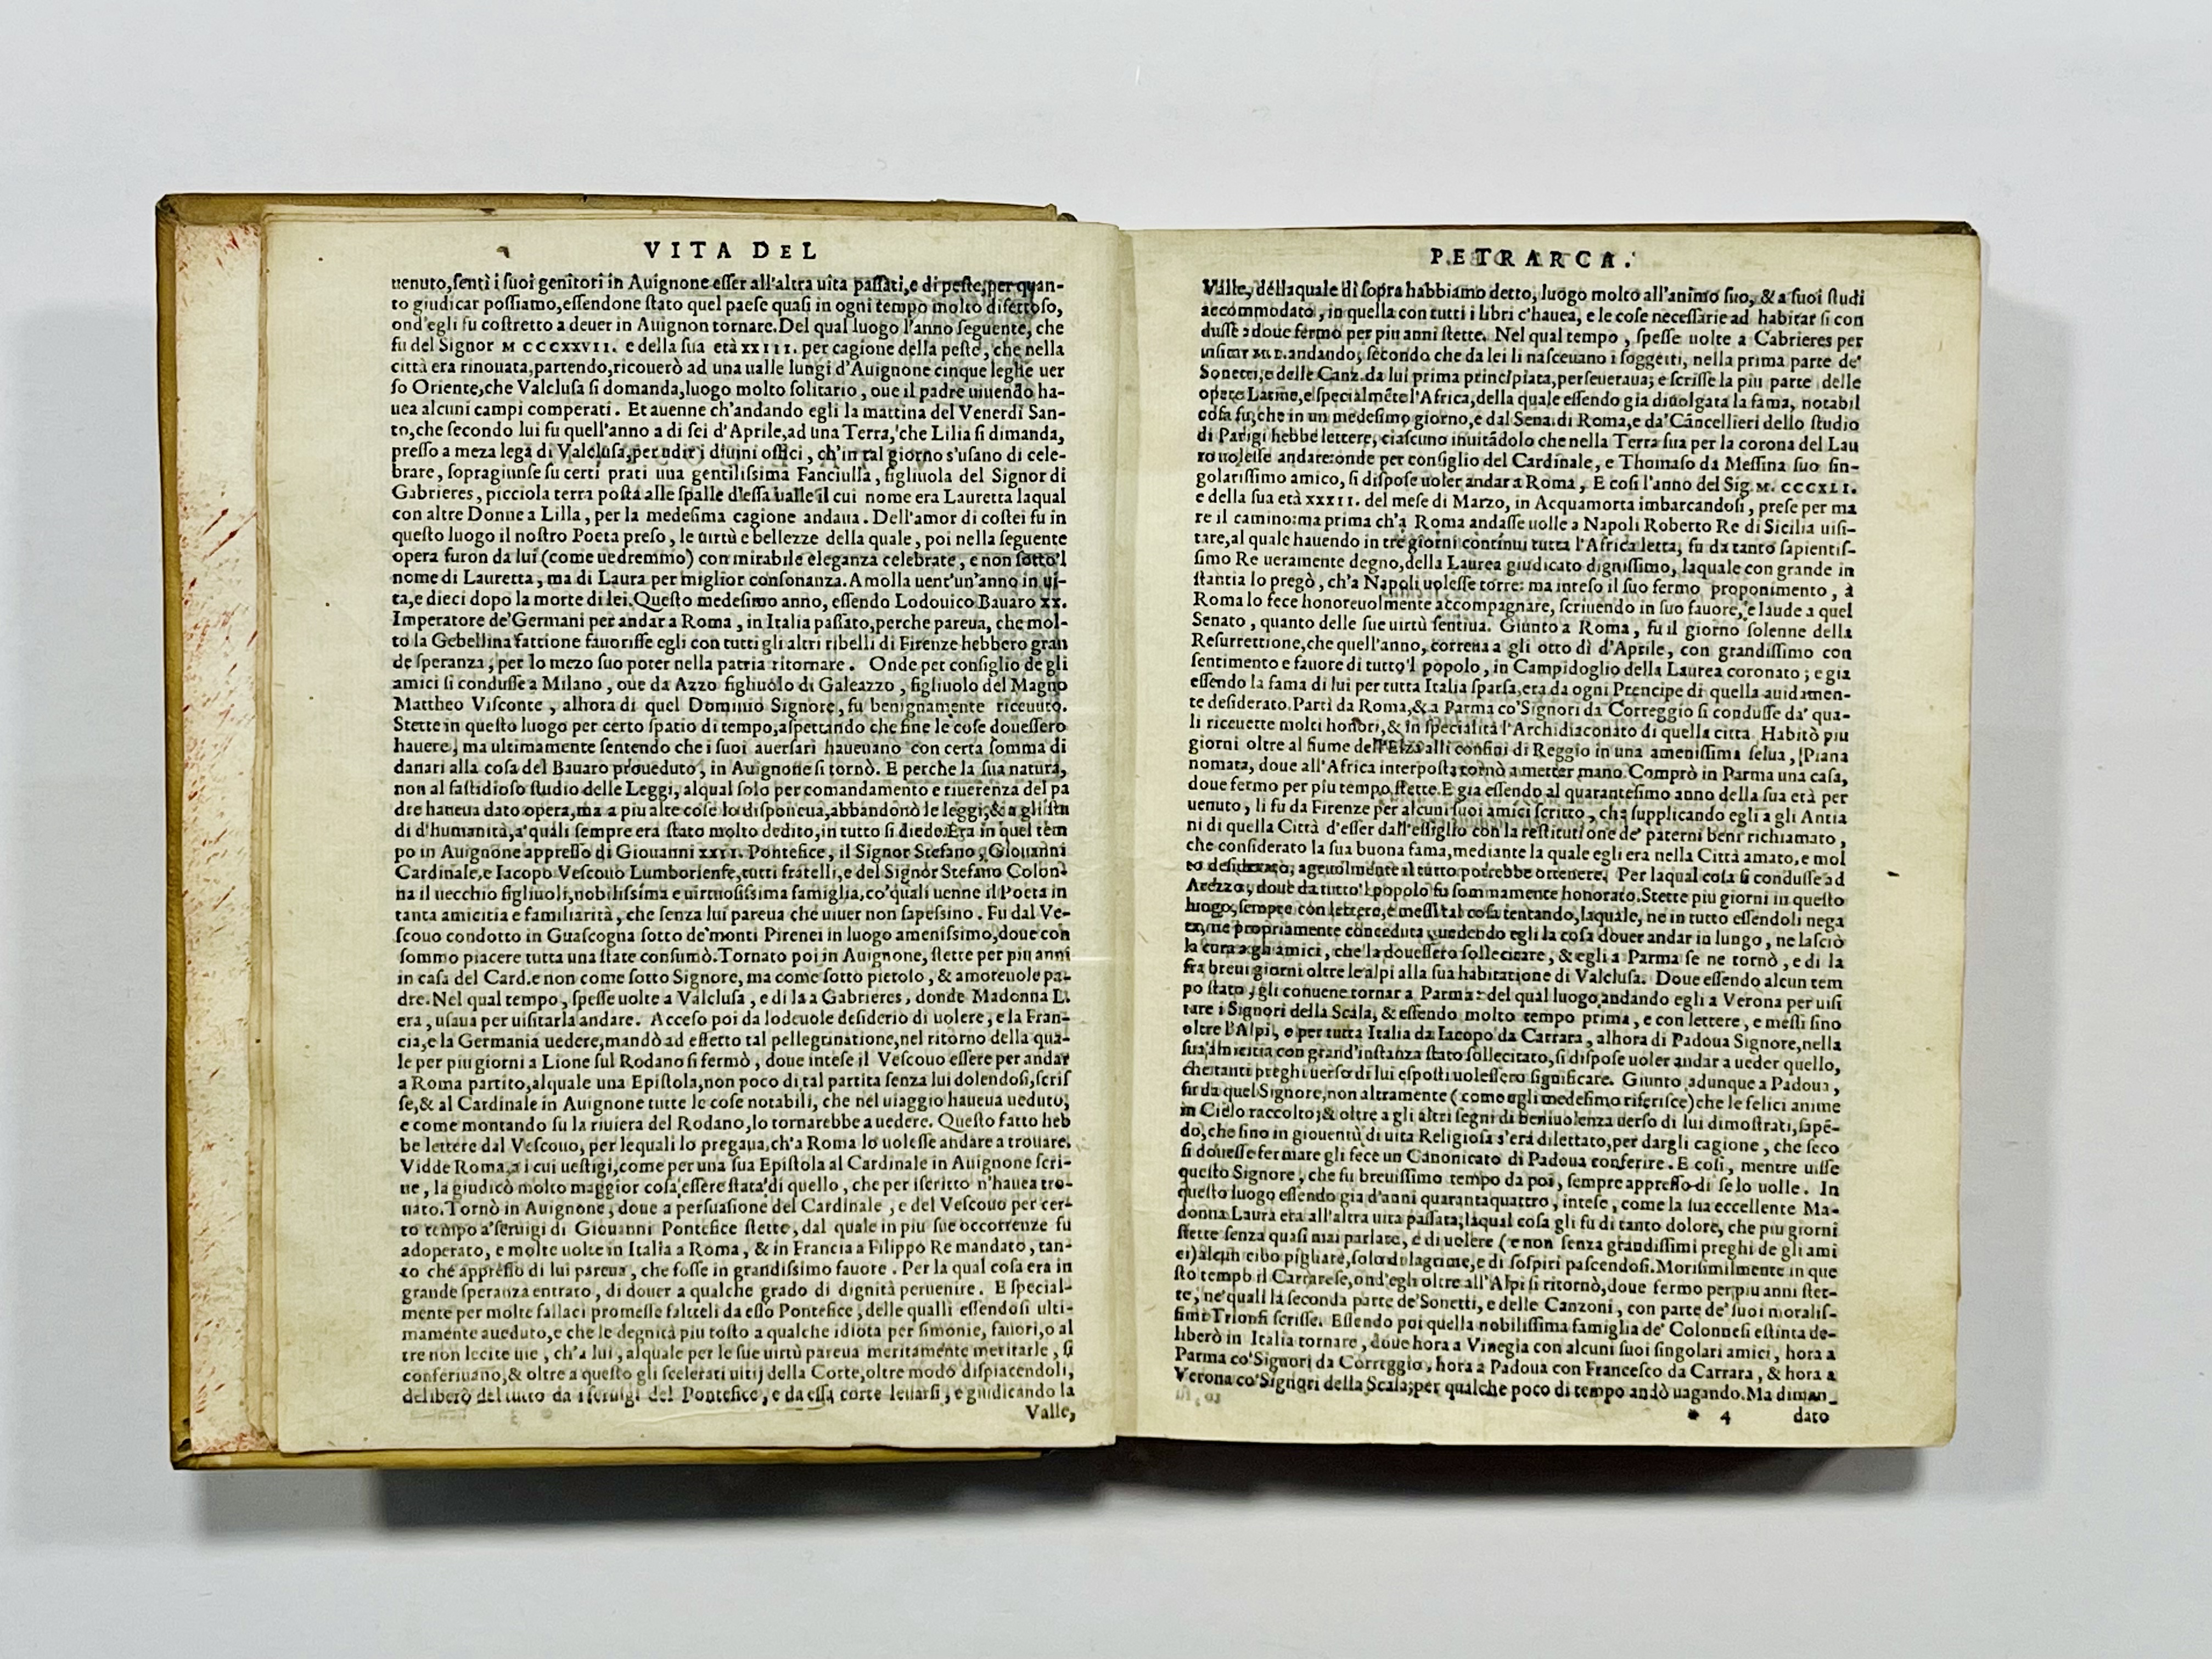 VITA DEL
uenuto,ſentì i ſuoi genitori in Auignone eſſer all'altra uita paſſati,e di peſte,per quan-
to giudicar poſſiamo,eſſendone ſtato quel paeſe quaſi in ogni tempo molto diſettoſo,
ond'egli fu coſtretto a deuer in Auignon tornare.Del qual luogo l'anno ſeguente, che
fu del Signor M CCCXXVII. e della ſua età XXIII. per cagione della peſte, che nella
città era rinouata,partendo,ricouerò ad una ualle lungi d'Auignone cinque leghe uer
ſo Oriente,che Valcluſa ſi domanda,luogo molto ſolitario, oue il padre uiuendo ha-
uea alcuni campi comperati. Et auenne ch'andando egli la mattina del Venerdì San-
to,che ſecondo lui fu quell'anno a di ſei d'Aprile,ad una Terra, che Lilia ſi dimanda,
preſſo a meza lega di Valcluſa,per udir i diuini offici, ch'in tal giorno s'uſano di cele-
brare, ſopragiunſe ſu certi prati una gentiliſſima Fanciulla, figliuola del Signor di
Gabrieres, picciola terra poſta alle ſpalle d'eſſa ualle il cui nome era Lauretta laqual
con altre Donne a Lilla, per la medeſima cagione andaua. Dell'amor di coſtei fu in
queſto luogo il noſtro Poeta preſo, le uirtù e bellezze della quale, poi nella ſeguente
opera furon da lui (come uedremmo) con mirabile eleganza celebrate, e non ſotto'l
nome di Lauretta, ma di Laura per miglior conſonanza.Amolla uent'un'anno in ui-
ta,e dieci dopo la morte di lei.Queſto medeſimo anno, eſſendo Lodouico Bauaro XX.
Imperatore de'Germani per andar a Roma, in Italia paſſato,perche pareua, che mol-
to la Gebellina fattione fauoriſſe egli con tutti gli altri ribelli di Firenze hebbero gran
de ſperanza, per lo mezo ſuo poter nella patria ritornare. Onde per conſiglio de gli
amici ſi conduſſe a Milano, oue da Azzo figliuolo di Galeazzo, figliuolo del Magno
Mattheo Viſconte, alhora di quel Dominio Signore, fu benignamente riceuuto.
Stette in queſto luogo per certo ſpatio di tempo,aſpettando che fine le coſe doueſſero
hauere, ma ultimamente ſentendo che i ſuoi auerſari haueuano con certa ſomma di
danari alla coſa del Bauaro proueduto, in Auignone ſi tornò. E perche la ſua natura,
non al faſtidioſo ſtudio delle Leggi, alqual ſolo per comandamento e riuerenza del pa
dre haueua dato opera,ma a piu alte coſe lo diſponeua,abbandonò le leggi;& a gli ſtu
di d'humanità,a'quali ſempre era ſtato molto dedito,in tutto ſi diedo.Era in quel tem
po in Auignone appreſſo di Giouanni XXII. Pontefice, il Signor Stefano, Giouanni
Cardinale,e Iacopo Veſcouo Lumborienſe,tutti fratelli,e del Signor Stefano Colon-
na il uecchio figliuoli,nobiliſſima e uirtuoſiſſima famiglia,co'quali uenne il Poeta in
tanta amicitia e familiarità, che ſenza lui pareua che uiuer non ſapeſſino. Fu dal Ve-
ſcouo condotto in Guaſcogna ſotto de'monti Pirenei in luogo ameniſſimo,doue con
ſommo piacere tutta una ſtate conſumò.Tornato poi in Auignone, ſtette per piu anni
in caſa del Card.e non come ſotto Signore, ma come ſotto pietoſo, & amoreuole pa-
dre.Nel qual tempo, ſpeſſe uolte a Valcluſa, e di la a Gabrieres, donde Madonna L.
era, uſaua per uiſitarla andare. Acceſo poi da lodeuole deſiderio di uolere, e la Fran-
cia,e la Germania uedere,mandò ad effetto tal pellegrinatione,nel ritorno della qua-
le per piu giorni a Lione ſul Rodano ſi fermò, doue inteſe il Veſcouo eſſere per andar
a Roma partito,alquale una Epiſtola,non poco di tal partita ſenza lui dolendoſi,ſcriſ
ſe,& al Cardinale in Auignone tutte le coſe notabili, che nel uiaggio haueua ueduto,
e come montando ſu la riuiera del Rodano,lo tornarebbe a uedere. Queſto fatto heb
be lettere dal Veſcouo, per lequali lo pregaua,ch'a Roma lo uoleſſe andare a trouare.
Vidde Roma,a i cui ueſtigi,come per una ſua Epiſtola al Cardinale in Auignone ſcri-
ue, la giudicò molto maggior coſa eſſere ſtata di quello, che per iſcritto n'hauea tro-
uato.Tornò in Auignone, doue a perſuaſione del Cardinale, e del Veſcouo per cer-
to tempo a'ſeruigi di Giouanni Pontefice ſtette, dal quale in piu ſue occorrenze fu
adoperato, e molte uolte in Italia a Roma, & in Francia a Filippo Re mandato, tan-
to che appreſſo di lui pareua, che foſſe in grandiſſimo fauore. Per la qual coſa era in
grande ſperanza entrato, di douer a qualche grado di dignità peruenire. E ſpecial-
mente per molte fallaci promeſſe fatteli da eſſo Pontefice, delle quali eſſendoſi ulti-
mamente aueduto,e che le degnità piu toſto a qualche idiota per ſimonie, fauori,o al
tre non lecite uie, ch'a lui, alquale per le ſue uirtù pareua meritamente meritarle, ſi
conferiuano,& oltre a queſto gli ſcelerati uitij della Corte,oltre modo diſpiacendoli,
deliberò del tutto da i ſeruigi del Pontefice, e da eſſa corte leuarſi, e giudicando la
Valle,
PETRARCA.
Valle, dellaquale di ſopra habbiamo detto, luogo molto all'animo ſuo, & a ſuoi ſtudi
accommodato, in quella con tutti i libri c'hauea, e le coſe neceſſarie ad habitar ſi con
duſſe: doue fermo per piu anni ſtette. Nel qual tempo, ſpeſſe uolte a Cabrieres per
uiſitar M.L.andando; ſecondo che da lei li naſceuano i ſoggetti, nella prima parte de'
Sonetti,e delle Canz.da lui prima principiata,perſeueraua; e ſcriſſe la piu parte delle
opere Latine,e ſpecialmẽte l'Africa,della quale eſſendo gia diuolgata la fama, notabil
coſa fu,che in un medeſimo giorno,e dal Sena.di Roma,e da'Cancellieri dello ſtudio
di Parigi hebbe lettere, ciaſcuno inuitãdolo che nella Terra ſua per la corona del Lau
ro uoleſſe andare:onde per conſiglio del Cardinale, e Thomaſo da Meſſina ſuo ſin-
golariſſimo amico, ſi diſpoſe uoler andar a Roma, E coſi l'anno del Sig M. CCCXLI.
e della ſua età XXXII. del meſe di Marzo, in Acquamorta imbarcandoſi, preſe per ma
re il camino:ma prima ch'a Roma andaſſe uolle a Napoli Roberto Re di Sicilia uiſi-
tare,al quale hauendo in tre giorni continui tutta l'Africa letta, fu da tanto ſapientiſ-
ſimo Re ueramente degno,della Laurea giudicato digniſſimo, laquale con grande in
ſtantia lo pregò, ch'a Napoli uoleſſe torre: ma inteſo il ſuo fermo proponimento, à
Roma lo fece honoreuolmente accompagnare, ſcriuendo in ſuo fauore, e laude a quel
Senato, quanto delle ſue uirtù ſentiua. Giunto a Roma, fu il giorno ſolenne della
Reſurrettione,che quell'anno, correua a gli otto dì d'Aprile, con grandiſſimo con
ſentimento e fauore di tutto'l popolo, in Campidoglio della Laurea coronato; e gia
eſſendo la fama di lui per tutta Italia ſparſa,era da ogni Prencipe di quella auidamen-
te deſiderato.Partì da Roma,& a Parma co'Signori da Correggio ſi conduſſe da' qua-
li riceuette molti honori,& in ſpecialità l'Archidiaconato di quella citta. Habitò piu
giorni oltre al fiume dell'Elza alli confini di Reggio in una ameniſſima ſelua, Piana
nomata, doue all'Africa interpoſta tornò a metter mano.Comprò in Parma una caſa,
doue fermo per piu tempo ſtette.E gia eſſendo al quarantesimo anno della ſua età per
uenuto, li fu da Firenze per alcuni ſuoi amici ſcritto, che ſupplicando egli a gli Antia
ni di quella Città d'eſſer dall'eſſiglio con la reſtitutione de' paterni beni richiamato,
che conſiderato la ſua buona fama,mediante la quale egli era nella Città amato,e mol
to deſiderato, ageuolmente il tutto potrebbe ottenere. Per laqual coſa ſi conduſſe ad
Arezzo, doue da tutto'l popolo fu ſommamente honorato.Stette piu giorni in queſto
luogo,ſempre con lettere,e meſſi tal coſa tentando,laquale, ne in tutto eſſendoli nega
ta,ne propriamente conceduta, uedendo egli la coſa douer andar in lungo, ne laſciò
la cura a gli amici, che la doueſſero ſollecitare, & egli a Parma ſe ne tornò, e di la
fra breui giorni oltre le alpi alla ſua habitatione di Valcluſa. Doue eſſendo alcun tem
po ſtato, gli conuene tornar a Parma: del qual luogo andando egli a Verona per uiſi
tare i Signori della Scala, & eſſendo molto tempo prima, e con lettere, e meſſi ſino
oltre l'Alpi, e per tutta Italia da Iacopo da Carrara, alhora di Padoua Signore,nella
ſua amicitia con grand'inſtanza ſtato ſollecitato, ſi diſpoſe uoler andar a ueder quello,
che tanti preghi uerſo di lui eſpoſti uoleſſero ſignificare. Giunto adunque a Padoua,
fu da quel Signore,non altramente (come egli medeſimo riferiſce)che le felici anime
in Cielo raccolto;& oltre a gli altri ſegni di beniuolenza uerſo di lui dimoſtrati,ſapẽ-
do,che ſino in giouentù di uita Religioſa s'era dilettato,per dargli cagione, che ſeco
ſi doueſſe fermare gli fece un Canonicato di Padoua conferire. E coſi, mentre uiſſe
queſto Signore, che fu breuiſſimo tempo da poi, ſempre appreſſo di ſe lo uolle. In
queſto luogo eſſendo gia d'anni quarantaquattro, inteſe, come la ſua eccellente Ma-
donna Laura era all'altra uita paſſata;laqual coſa gli fu di tanto dolore, che piu giorni
ſtette ſenza quaſi mai parlare, e di uolere (e non ſenza grandiſſimi preghi de gli ami
ci)alcun cibo pigliare,ſolo di lagrime,e di ſoſpiri paſcendoſi.Moriſimilmente in que
ſto tempo il Carrareſe,ond'egli oltre all'Alpi ſi ritornò,doue fermo per piu anni ſtet-
te, ne'quali la ſeconda parte de'Sonetti, e delle Canzoni, con parte de' ſuoi moraliſ-
ſimi Trionfi ſcriſſe. Eſſendo poi quella nobiliſſima famiglia de' Colonneſi eſtinta de-
liberò in Italia tornare, doue hora a Vinegia con alcuni ſuoi ſingolari amici, hora a
Parma co'Signori da Correggio, hora a Padoua con Franceſco da Carrara, & hora a
Verona co'Signori della Scala;per qualche poco di tempo andò uagando.Ma diman-
* 4 dato